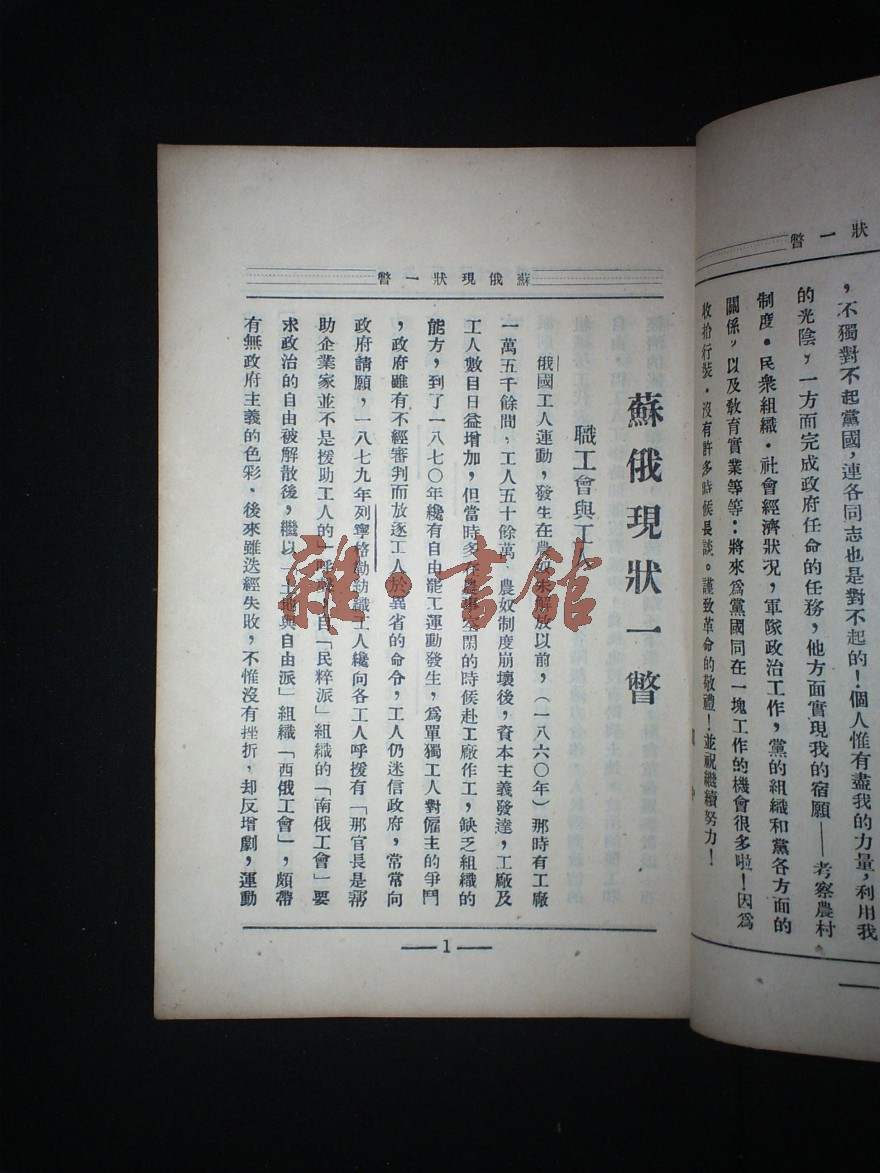 狀一瞥
，不獨對不起黨國，連各同志也是對不起的！個人惟有盡我的力量，利用我
的光陰，一方面完成政府任命的任務，他方面實現我的宿願——考察農村
制度．民衆組織．社會經濟狀況，軍隊政治工作，黨的組織和黨各方面的
關係，以及敎育實業等等：將來爲黨國同在一塊工作的機會很多啦！因爲
收拾行裝．沒有許多時候長談。謹致革命的敬禮！並祝繼續努力！
蘇俄現狀一瞥
蘇俄現狀一瞥
職工會與工人
俄國工人運動，發生在農奴未解放以前，（一八六〇年）那時有工廠
一萬五千餘間，工人五十餘萬、農奴制度崩壞後，資本主義發達，工廠及
工人數目日益增加，但當時多在農事空閑的時候赴工廠作工，缺乏組織的
能方，到了一八七〇年纔有自由罷工運動發生，爲單獨工人對僱主的爭鬥
，政府雖有不經審判而放逐工人於異省的命令，工人仍迷信政府，常常向
政府請願，一八七九年列寧格勒紡織工人纔向各工人呼援有「那官長是幇
助企業家並不是援助工人的」呼聲，自「民粹派」組織的「南俄工會」要
求政治的自由被解散後，繼以「土地與自由派」組織「西俄工會」，頗帶
有無政府主義的色彩．後來雖迭經失敗，不惟沒有挫折，却反增劇，運動
1
雜·書館